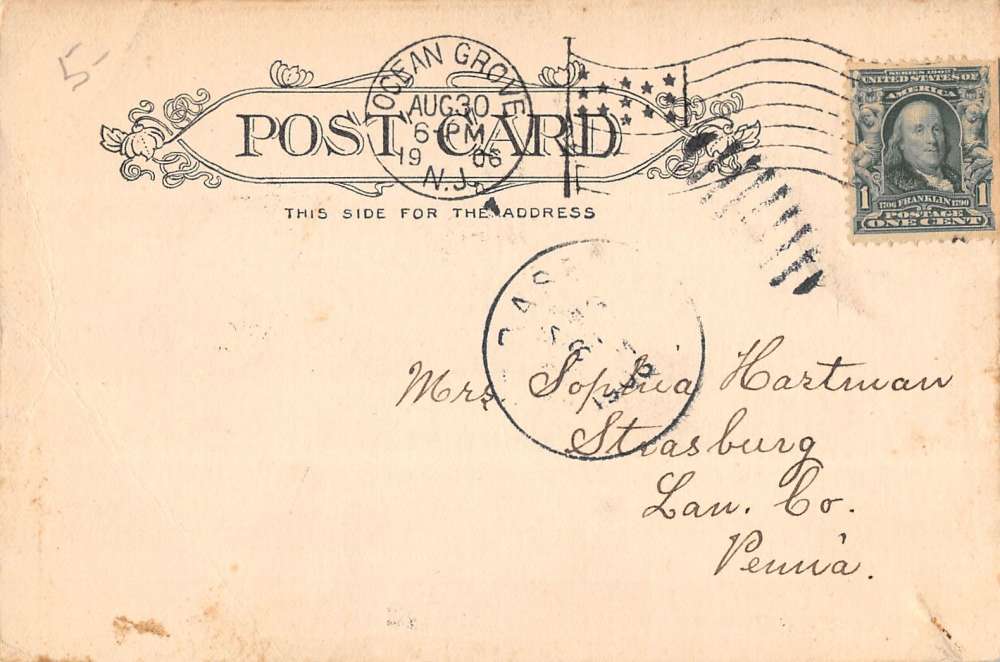 5-
POST CARD
THIS SIDE FOR THE ADDRESS
OCEAN GROVE
AUG 30
6-PM
1906
N.J.
SERIES 1902
UNITED STATES OF
AMERICA
1 1
1706 FRANKLIN 1790
POSTAGE
ONE CENT
Mrs. Sophia Hartman
Strasburg
Lan. Co.
Penn'a.